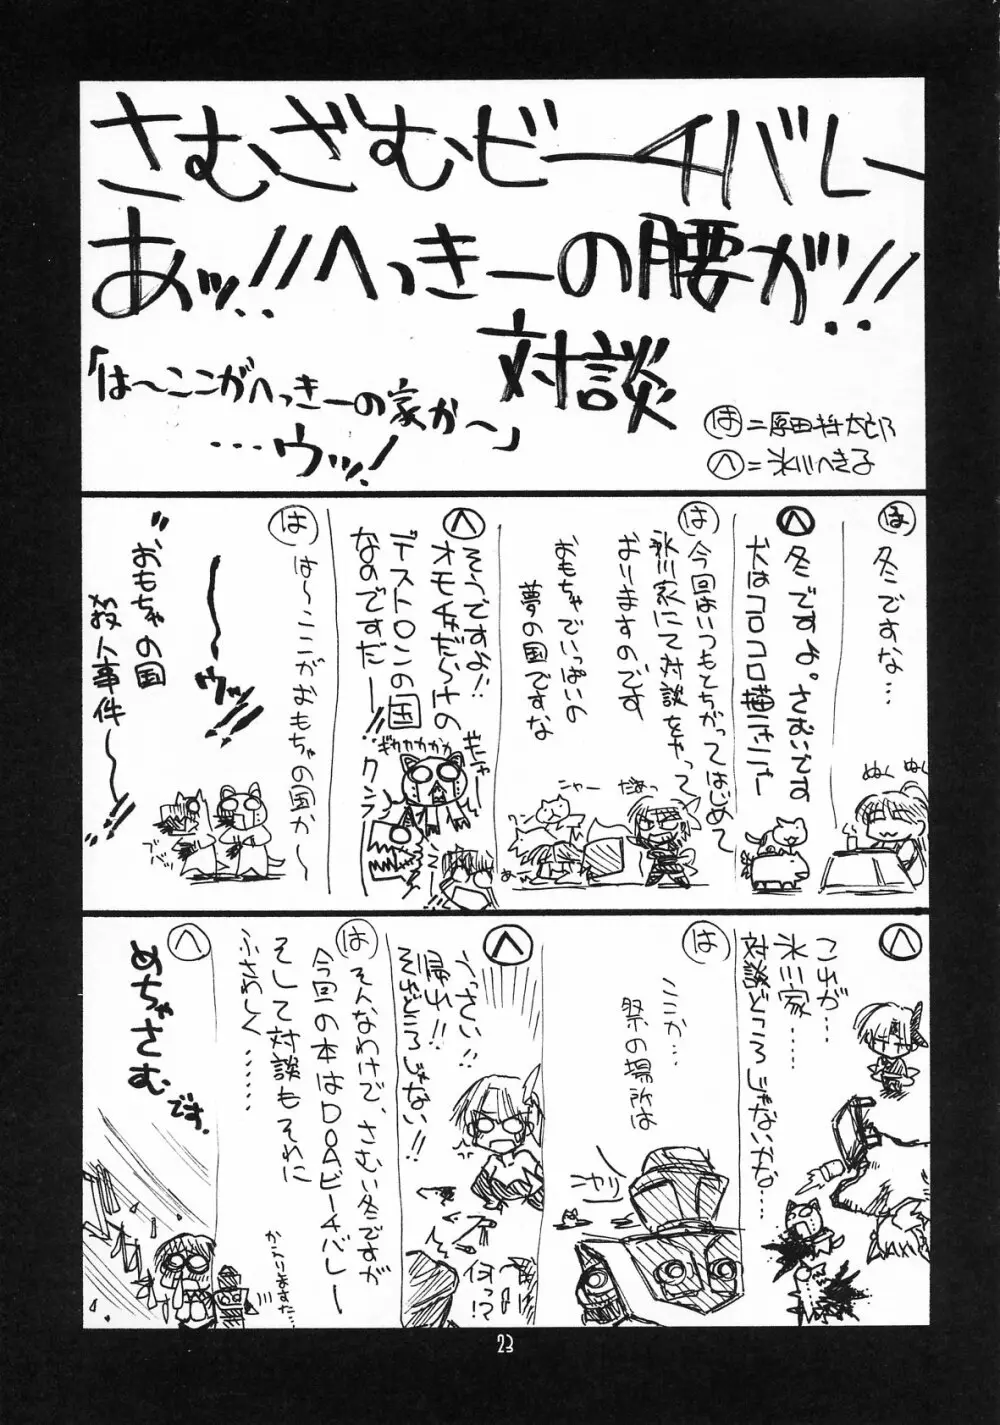 さむざむビーチバレー
あッ!!へっきーの腰が!!
対談
「は〜ここがへっきーの家か〜」
…ウッ!
は=原田将太郎
へ=氷川へき子
は 冬ですな…
ぬくぬく
へ 冬ですよ。さむいです
犬はコロコロ猫はニャー
は 今回はいつもとちがってはじめて
氷川家にて対談をやって
おりますのです
おもちゃでいっぱいの
夢の国ですな
ニャー
へ そうですよ!!
オモチャだらけの
デストロンの国
なのですだー!!
は は〜ここがおもちゃの国か〜
〜〜ウッ!!
"おもちゃの国
殺人事件〜
へ これが…
氷川家……
対談どころじゃないかな…
は ここか…
祭の場所は
ニヤリ
へ うっさい!!
帰れ!!
それどころじゃない!!
何っ!?
は そんなわけで、さむい冬ですが
今回の本はDOAビーチバレー
そして対談もそれに
ふさわしく……
かえりますた…
へ めちゃさむです.
23